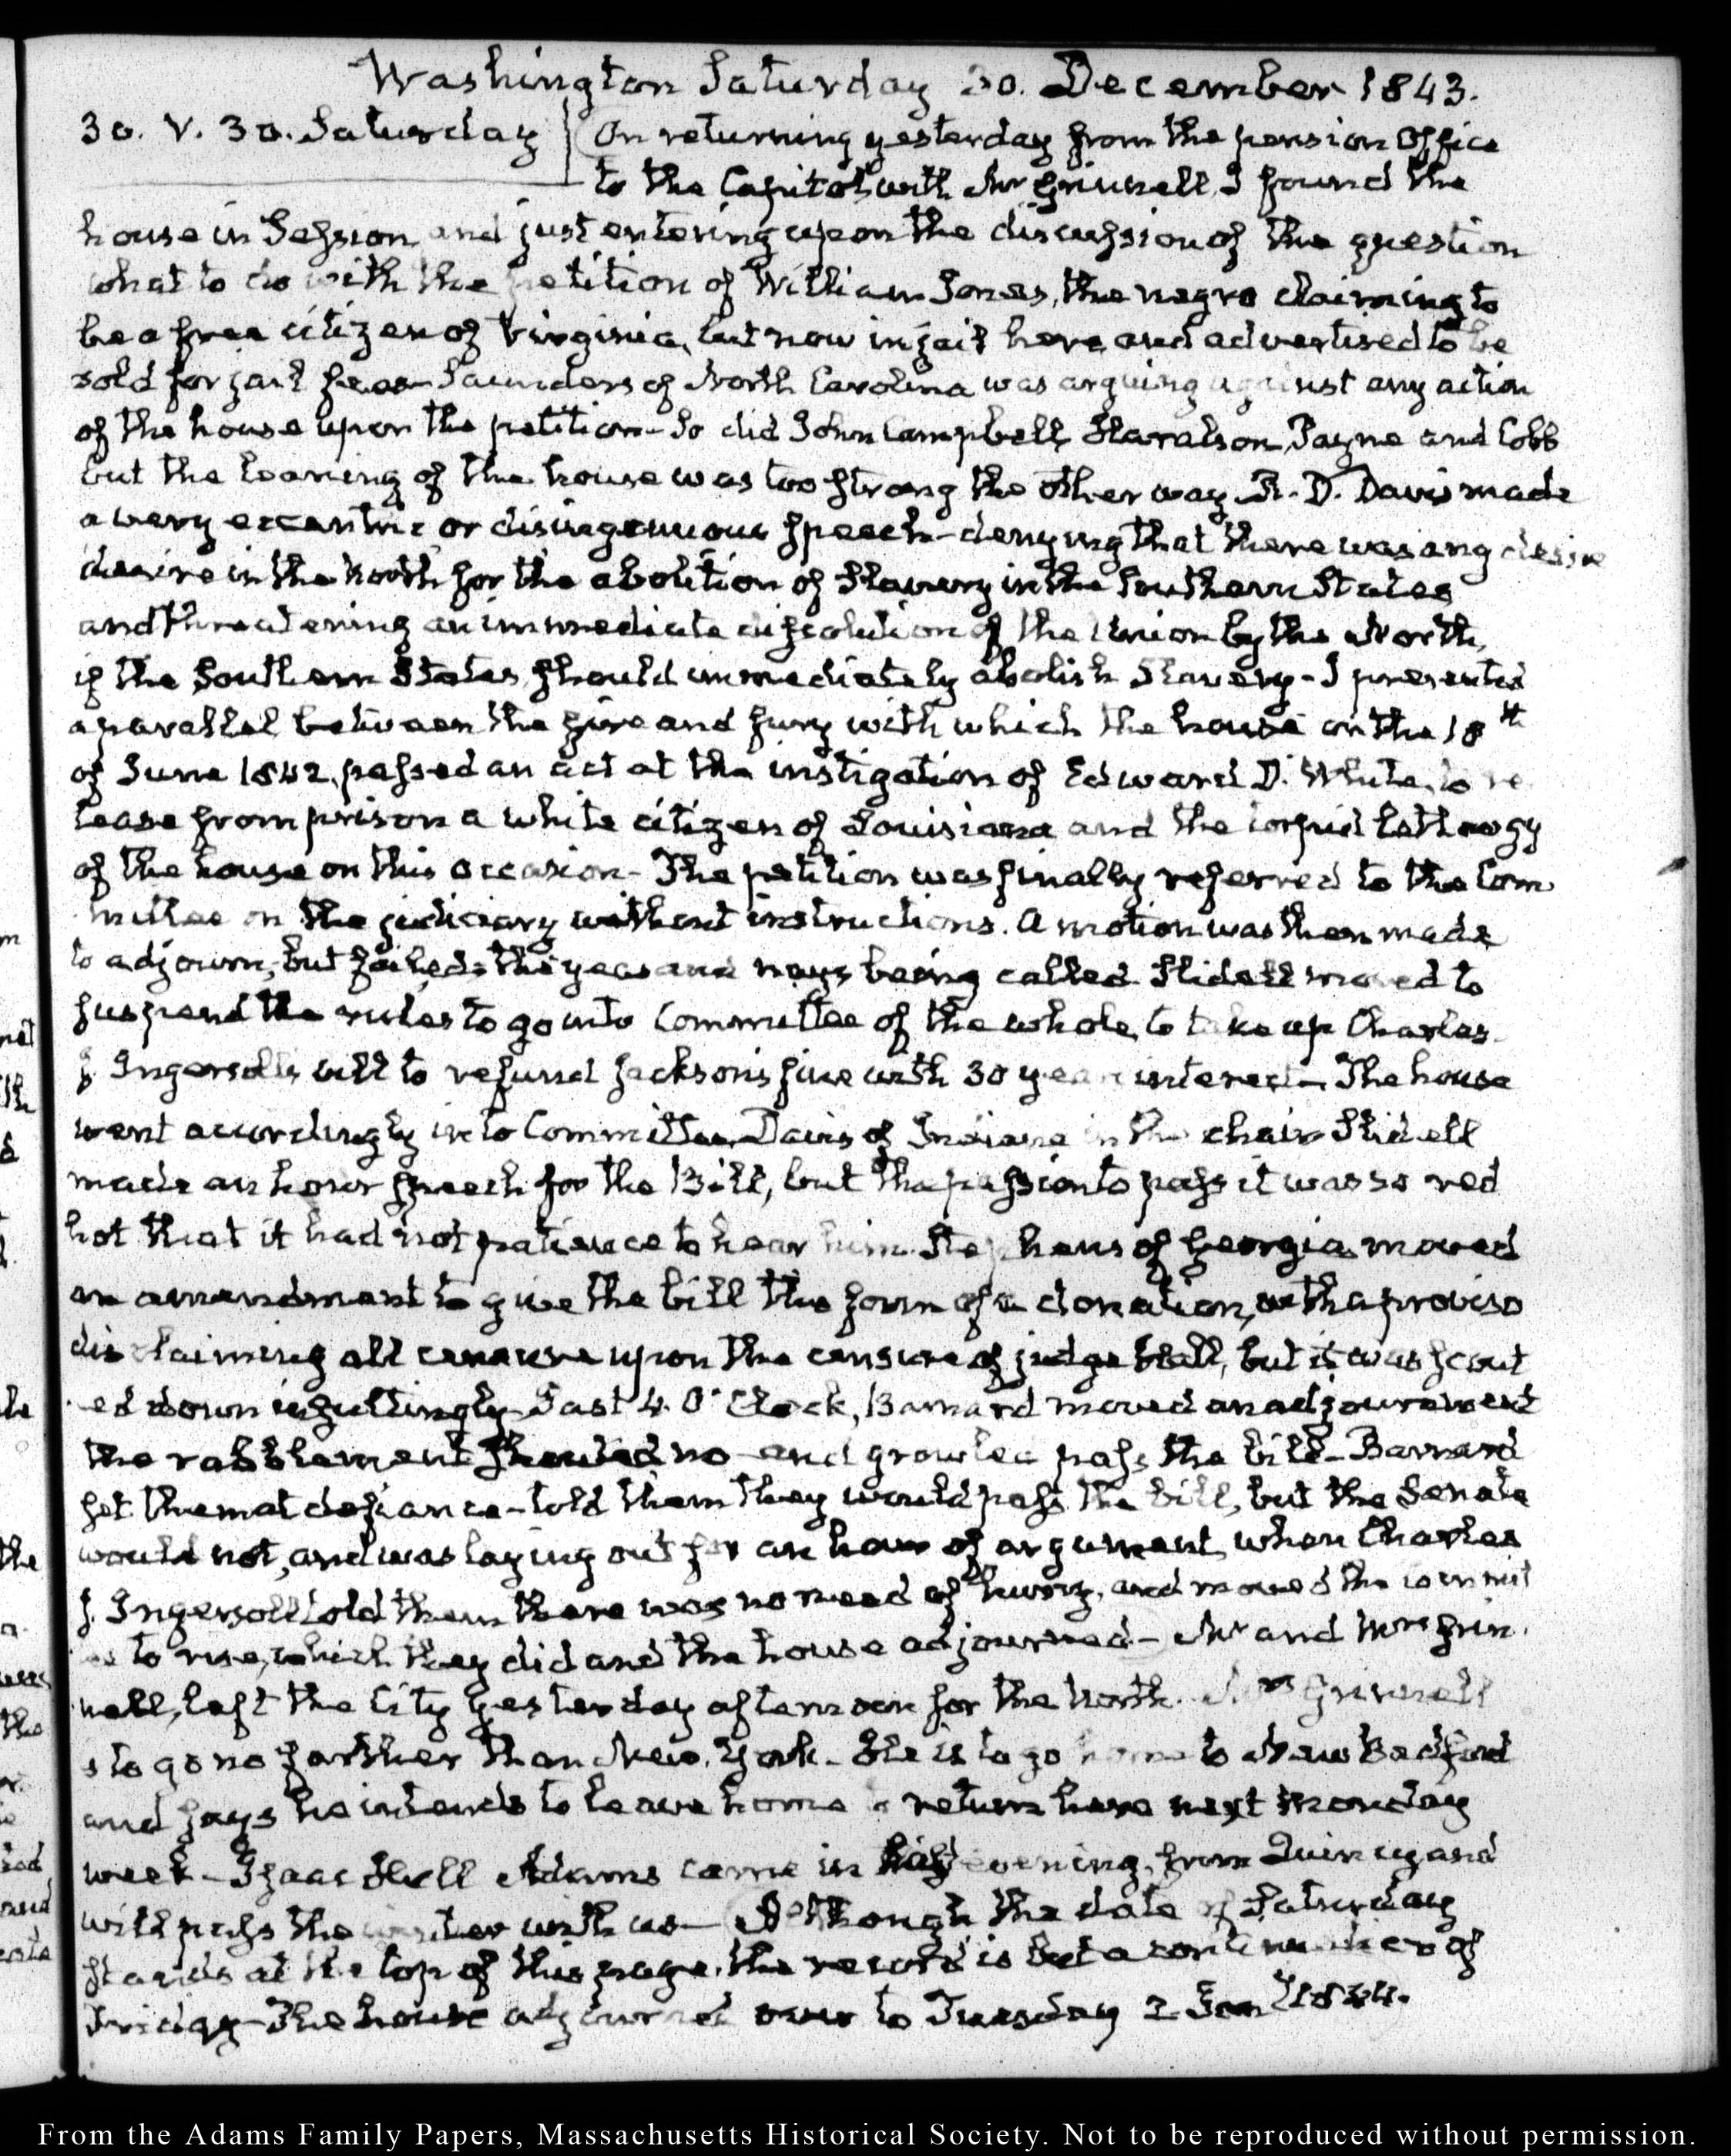 Washington Saturday 30. December 1843.
30. V. 30. Saturday
On returning yesterday from the pension Office
to the Capitol with Mr Grinnell, I found the
house in Session and just entering upon the discussion of the question
what to do with the petition of William Jones, the negro claiming to
be a free citizen of Virginia, but now in jail here, and advertised to be
sold for jail fees— Saunders of North Carolina was arguing against any action
of the house upon the petition— So did John Campbell, Haralson, Payne and Cobb
but the leaning of the house was too strong the other way. R. D. Davis made
a very eccentric or disingenuous speech— denying that there was any desire
desire in the North for the abolition of Slavery in the Southern States
and threatening an immediate dissolution of the Union by the North,
if the Southern States, should immediately abolish Slavery— I presented
a parallel between the fire and fury with which the house on the 18th
of June 1842. passed an act at the instigation of Edward D. White, to re
lease from prison a white citizen of Louisiana and the torpid lethargy
of the house on this occasion— The petition was finally referred to the Com
mittee on the judiciary without instructions. A motion was then made
to adjourn, but failed; the yeas and nays being called. Slidell moved to
suspend the rules to go into Committee of the whole, to take up Charles
J. Ingersoll's bill to refund Jackson's fine with 30 year interest— The house
went accordingly into Committee, Davis of Indiana in the chair Slidell
made an hour speech for the Bill, but the passion to pass it was so red
hot that it had not patience to hear him. Stephens of Georgia moved
an amendment to give the bill the form of a donation, with a proviso
disclaiming all censure upon the censure of judge Hall, but it was scout
ed down insultingly— Past 4. O'Clock, Barnard moved an adjournment
the rabblement shouted no— and growled pass the bill— Barnard
set them at defiance— told them they would pass the bill, but the Senate
would not, and was laying out for an hour of argument, when Charles
J. Ingersoll told them there was no need of hurry, and moved the commit
ee to rise, which they did and the house adjourned— Mr and Mrs Grin
nell, left the City yesterday afternoon for the North. Mrs Grinnell
is to go no farther than New York— He is to go home to New Bedford
and says he intends to leave home to return here next Monday
week— Isaac Hull Adams came in this evening, from Quincy and
will pass the winter with us— Although the date of Saturday
stands at the top of this page, the record is but a continuance of
Friday— The house adjourned over to Tuesday 2 Jany 1844.
From the Adams Family Papers, Massachusetts Historical Society. Not to be reproduced without permission.